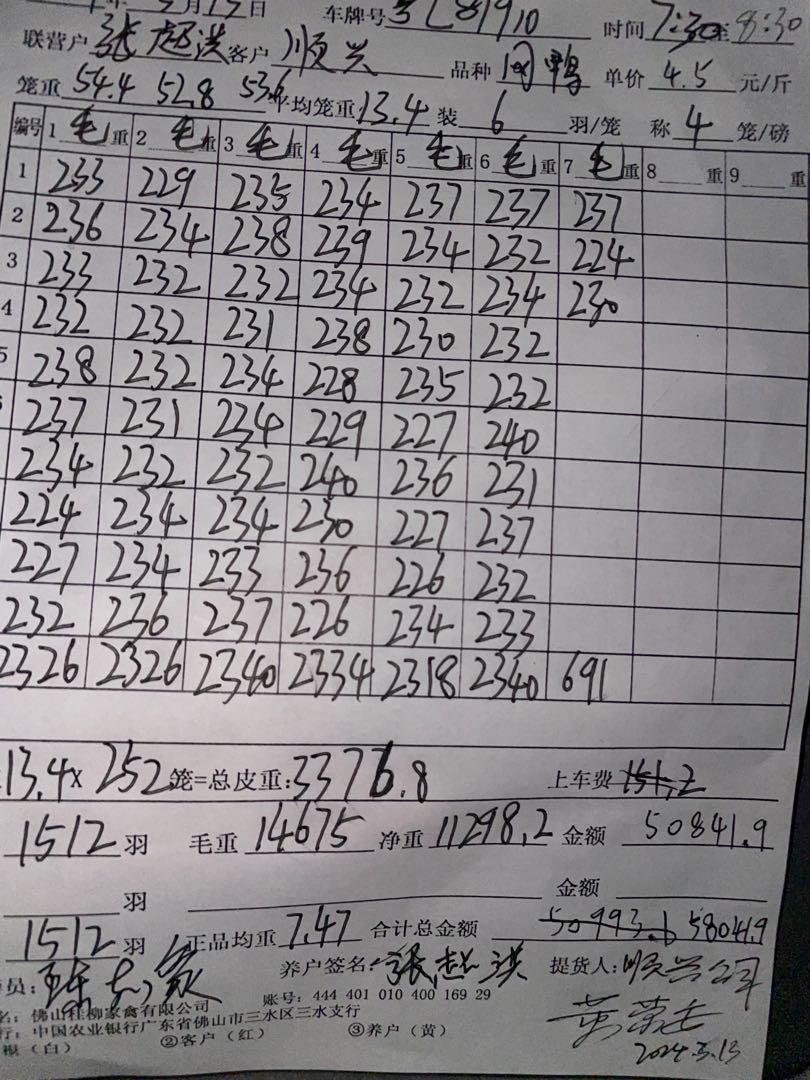 年 5月13日 车牌号 时间 7:30至8:30
联营户 张超洪 客户 顺兴 品种 闪鸭 单价 4.5 元/斤
笼重 54.4 52.8 53.6 平均笼重: 13.4 装 6 羽/笼 称 4 笼/磅
编号 1 毛 重 2 毛 重 3 毛 重 4 毛 重 5 毛 重 6 毛 重 7 毛 重 8 重 9 重
1 233 229 235 234 237 237 237
2 236 234 238 239 234 232 224
3 233 232 232 234 232 234 230
4 232 232 231 238 230 232
5 238 232 234 228 235 232
237 231 234 229 227 240
234 232 232 240 236 231
224 234 234 230 227 237
227 234 233 236 226 232
232 236 237 226 234 233
2326 2326 2340 2334 2318 2340 691
13.4 × 252 笼=总皮重: 3376.8 上车费 151.2
1512 羽 毛重 14675 净重 11298.2 金额 50841.9
羽 金额
1512 羽 正品均重 7.47 合计总金额 50993.6 58041.9
员: 养户签名: 张超洪 提货人: 顺兴公司
名: 佛山桂柳家禽有限公司 账号: 444 401 010 400 169 29
行: 中国农业银行广东省佛山市三水区三水支行
根（白） ②客户（红） ③养户（黄）
2024.5.13